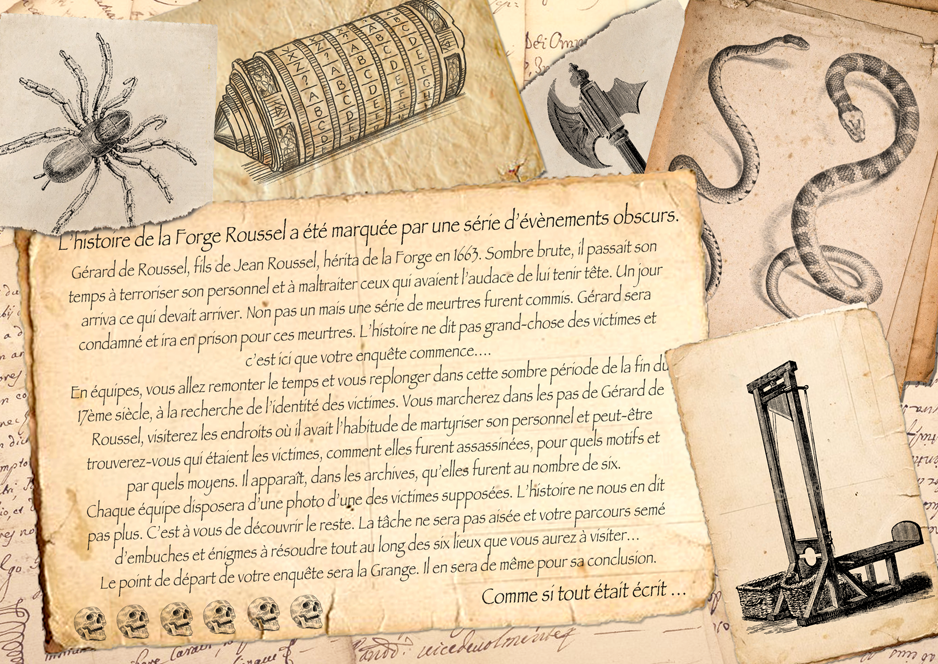 L'histoire de la Forge Roussel a été marquée par une série d'évènements obscurs.
Gérard de Roussel, fils de Jean Roussel, hérita de la Forge en 1663. Sombre brute, il passait son
temps à terroriser son personnel et à maltraiter ceux qui avaient l'audace de lui tenir tête. Un jour
arriva ce qui devait arriver. Non pas un mais une série de meurtres furent commis. Gérard sera
condamné et ira en prison pour ces meurtres. L'histoire ne dit pas grand-chose des victimes et
c'est ici que votre enquête commence....
En équipes, vous allez remonter le temps et vous replonger dans cette sombre période de la fin du
17ème siècle, à la recherche de l'identité des victimes. Vous marcherez dans les pas de Gérard de
Roussel, visiterez les endroits où il avait l'habitude de martyriser son personnel et peut-être
trouverez-vous qui étaient les victimes, comment elles furent assassinées, pour quels motifs et
par quels moyens. Il apparaît, dans les archives, qu'elles furent au nombre de six.
Chaque équipe disposera d'une photo d'une des victimes supposées. L'histoire ne nous en dit
pas plus. C'est à vous de découvrir le reste. La tâche ne sera pas aisée et votre parcours semé
d'embuches et énigmes à résoudre tout au long des six lieux que vous aurez à visiter...
Le point de départ de votre enquête sera la Grange. Il en sera de même pour sa conclusion.
Comme si tout était écrit ...